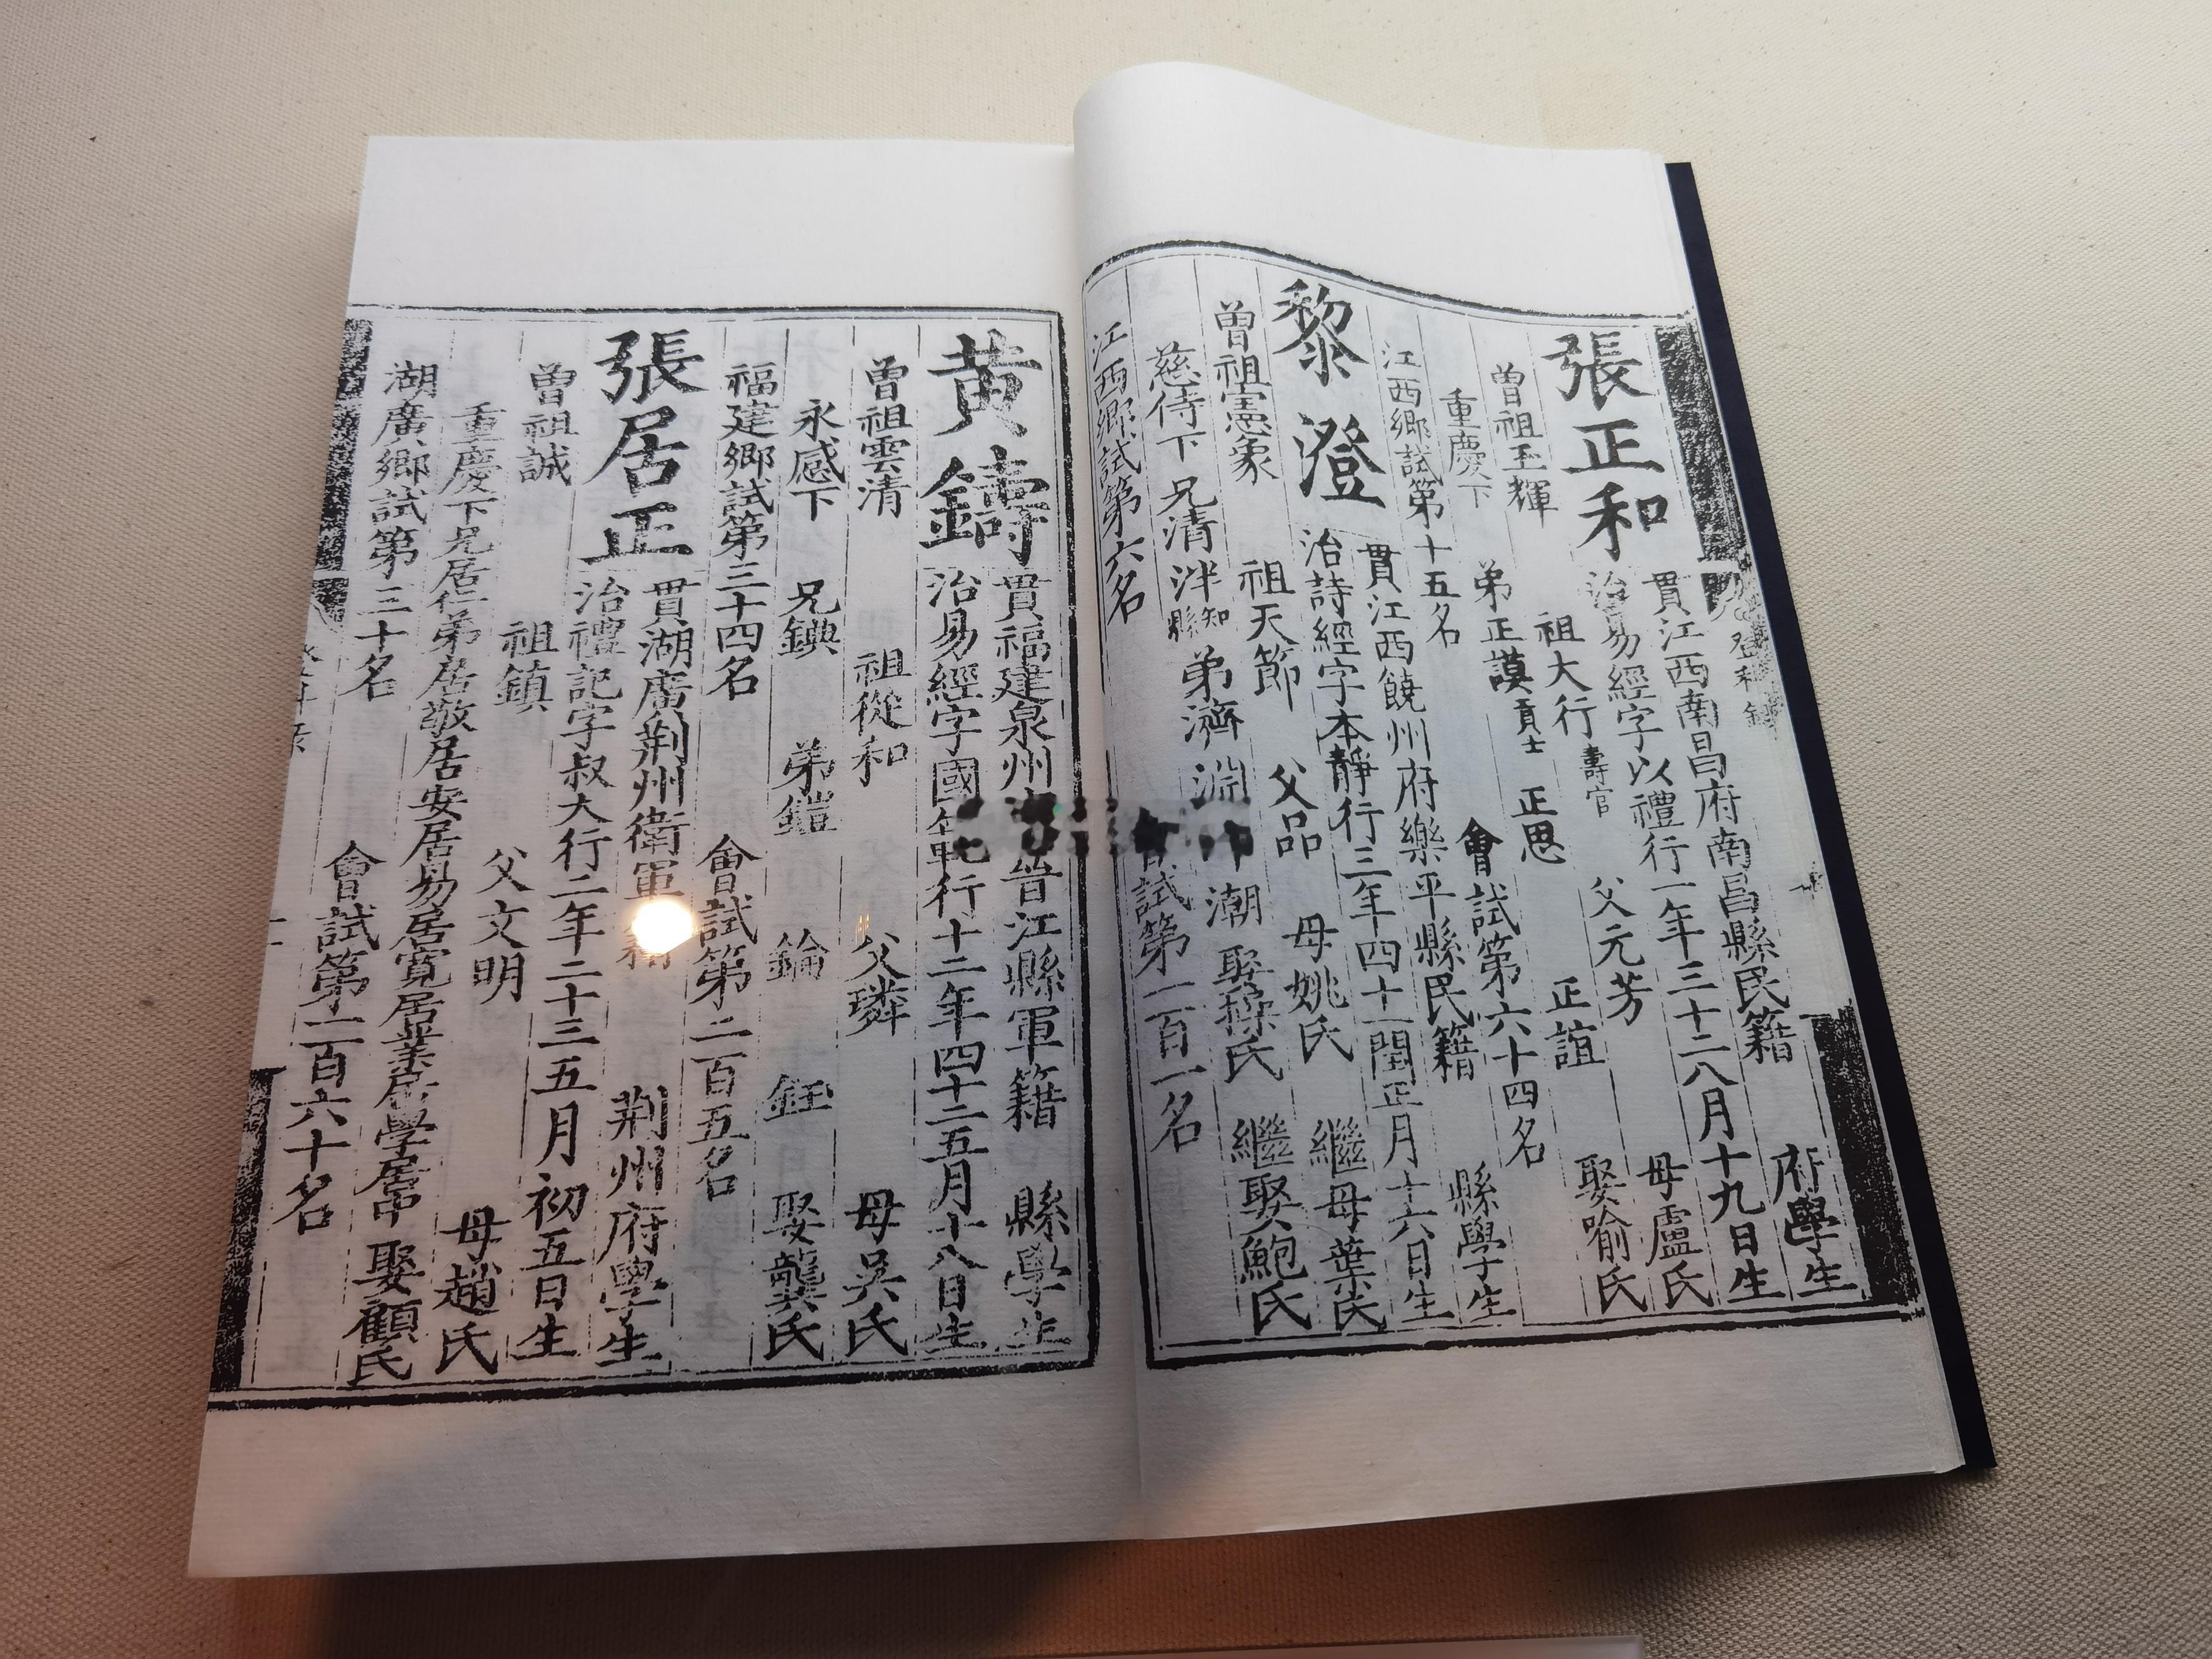 張正和
貫江西南昌府南昌縣民籍 府學生
治易經字以禮行一年三十二八月十九日生
曾祖玉輝 祖大行壽官 父元芳 母盧氏
重慶下 弟正謨貢士 正思 正誼 娶喻氏
江西鄉試第十五名 會試第六十四名
黎澄
貫江西饒州府樂平縣民籍 縣學生
治詩經字本靜行三年四十一閏正月十六日生
曾祖憲象 祖天節 父品 母姚氏 繼母葉氏
慈侍下 兄清 泮知縣 弟濟 淵 潮 娶操氏 繼娶鮑氏
江西鄉試第六名 試第一百一名
黃鑄
貫福建泉州 晉江縣軍籍 縣學生
治易經字國 行十二年四十二五月十八日生
曾祖雲清 祖從和 父璘 母吳氏
永感下 兄錪 弟鎧 錀 鈺 娶龔氏
福建鄉試第三十四名 會試第二百五名
張居正
貫湖廣荆州衛軍籍 荆州府學生
治禮記字叔大行二年二十三五月初五日生
曾祖誠 祖鎮 父文明 母趙氏
重慶下兄居仁弟居敬居安居易居寬居業居學居中 娶顧氏
湖廣鄉試第三十名 會試第一百六十名